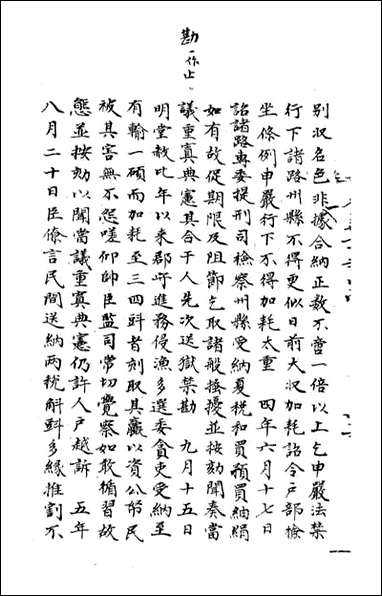 勘一作止
別収名色非據合納正数不啻一倍以上乞申嚴法禁
行下諸路州縣不得更似日前大収加耗詔令戸部檢
坐條例申嚴行下不得加耗太重　四年六月十七日
詔諸路專委提刑司檢察州縣受納夏税和買預買紬絹
如有故促期限及阻節乞取諸般搔擾並按劾聞奏當
議重寘典憲其合干人先次送獄禁勘　九月十五日
明堂赦比年以来郡守進務侵漁多選委貪吏受納至
有輸一碩而加耗至三四㪷者刻取其贏以資公帑民
被其害無不怨嗟仰帥臣監司常切覺察如敢循習故
態並按劾以聞當議重寘典憲仍許人戸越訴　五年
八月二十日臣僚言民間送納兩税斛㪷多緣推割不